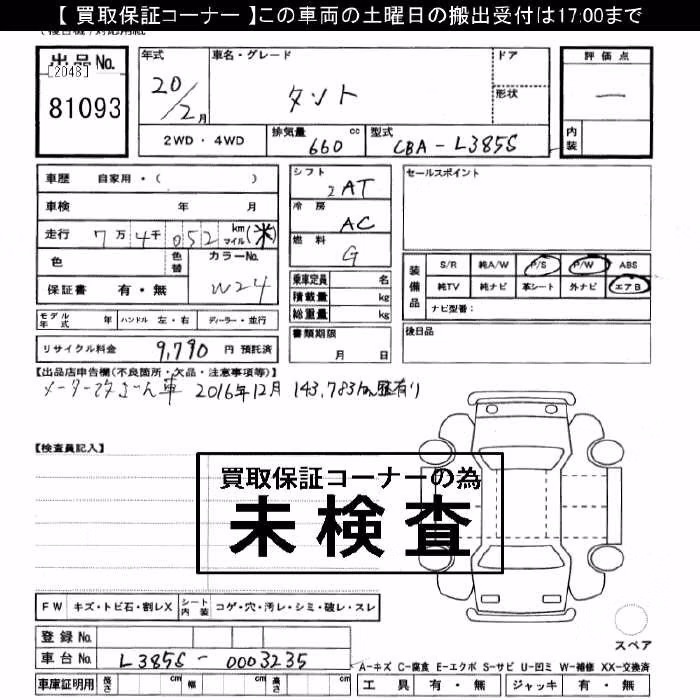 【 買取保証コーナー 】この車両の土曜日の搬出受付は17:00まで
出品No.
[2048]
81093
年式
20/2月
車名・グレード
タント
ドア
形状
評価点
―
内装
2WD・4WD
排気量
660 cc
型式
CBA-L385S
車歴 自家用・( )
車検 年 月
走行 7万4千052 km マイル (米)
色
色替
カラーNo.
W24
保証書 有・無
シフト
2AT
冷房
AC
燃料
G
乗車定員 名
積載量 kg
総重量 kg
セールスポイント
装備品
S/R 純A/W P/S P/W ABS
純TV 純ナビ 革シート 外ナビ エアB
ナビ型番：
モデル年式 年 ハンドル 左・右 ディーラー・並行
書類期限
月 日
後日品
リサイクル料金 9,790 円 預託済
【出品店申告欄(不良箇所・欠品・注意事項等)】
メーター改ざん車 2016年12月 143,783km歴有り
【検査員記入】
買取保証コーナーの為
未検査
FW キズ・トビ石・割レX シート内装 コゲ・穴・汚レ・シミ・破レ・スレ
登録No.
車台No. L385S-0003235
スペア
A-キズ C-腐食 E-エクボ S-サビ U-凹ミ W-補修 XX-交換済
車庫証明用 長さ cm 幅 cm 高さ cm
工具 有・無 ジャッキ 有・無